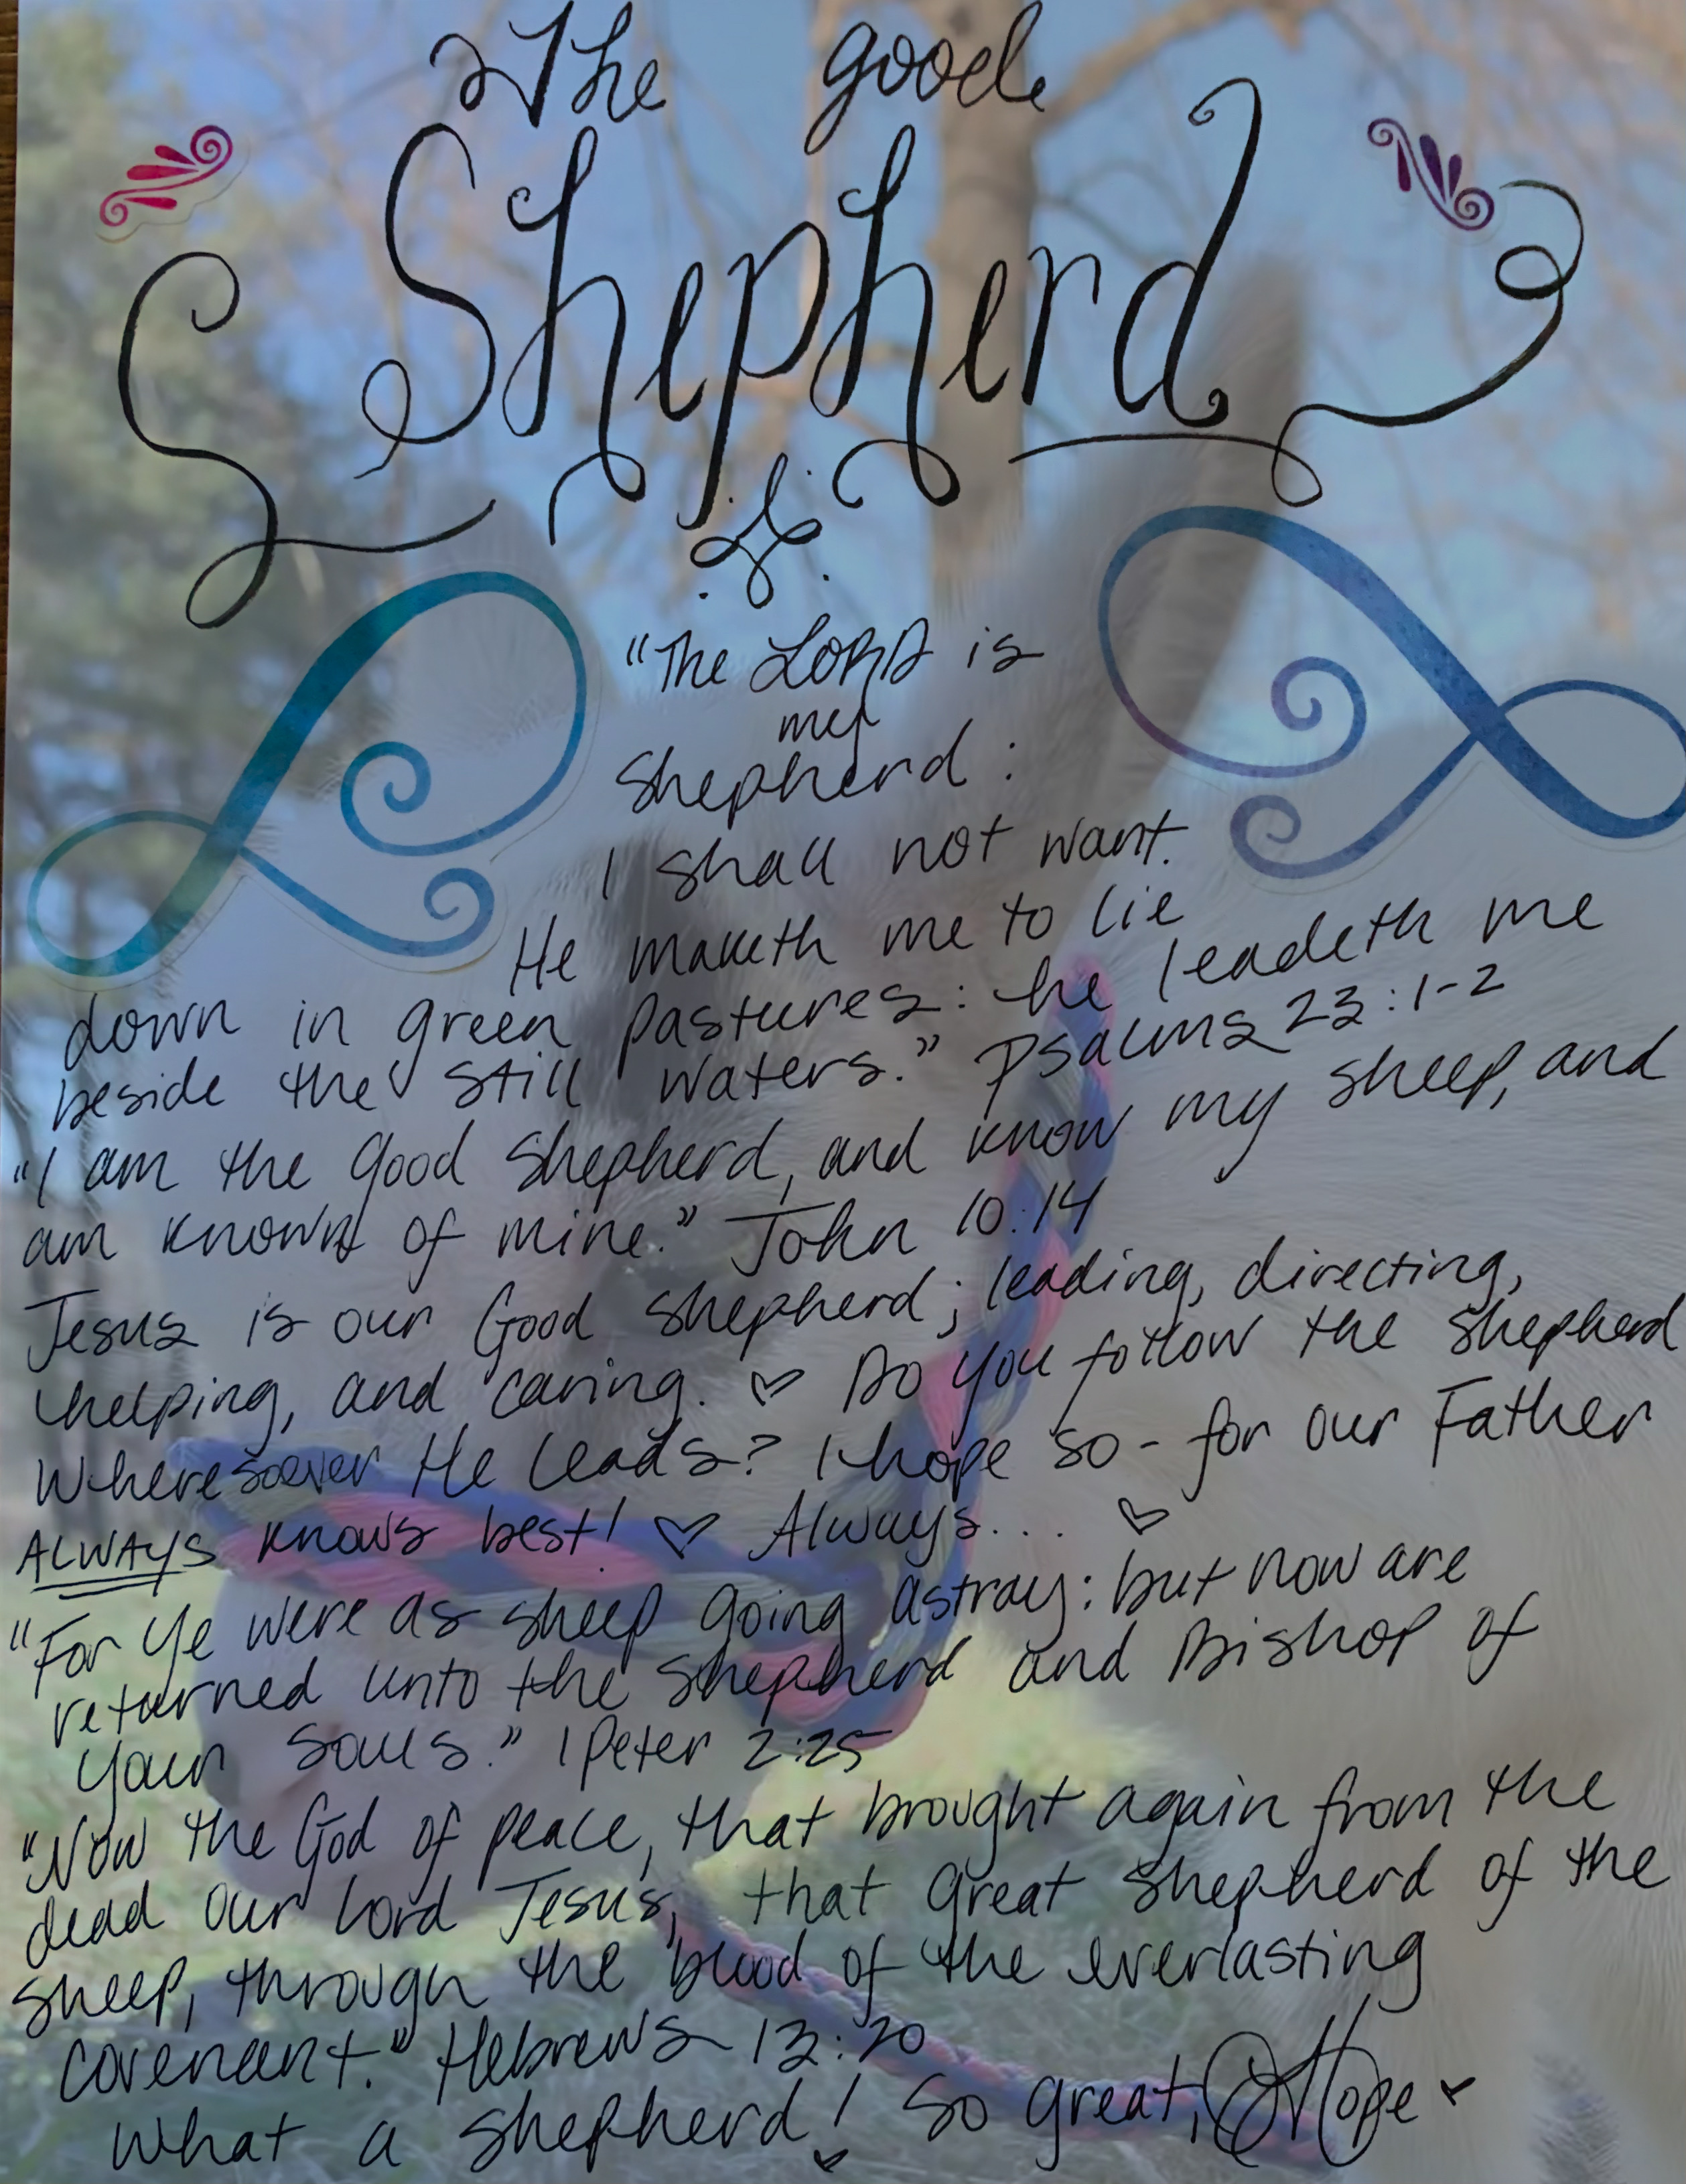 The good
Shepherd
"The LORD is
my
Shepherd:
I shall not want.
He maketh me to lie
down in green pastures: he leadeth me
beside the still waters." Psalms 23:1-2
"I am the good shepherd, and know my sheep, and
am known of mine." John 10:14
Jesus is our Good Shepherd; leading, directing,
helping, and caring. ♡ Do you follow the Shepherd
Wheresoever He leads? I hope so - for our Father
ALWAYS knows best! ♡ Always... ♡
"For ye were as sheep going astray: but now are
returned unto the Shepherd and Bishop of
your souls." 1 Peter 2:25
"Now the God of peace, that brought again from the
dead our Lord Jesus, that great shepherd of the
sheep, through the blood of the everlasting
covenant." Hebrews 13:20
What a Shepherd! So great, Hope ♡